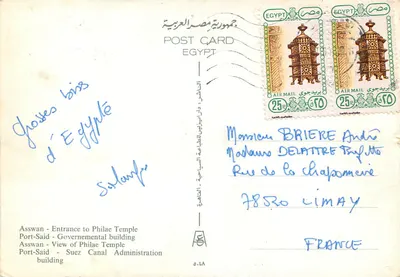 جمهورية مصر العربية
POST CARD
EGYPT
EGYPT مصر
AIR MAIL بريد جوى
25 P ٢٥
EGYPT مصر
AIR MAIL بريد جوى
25 P ٢٥
Grosses bises
d'Egypte
Monsieur BRIERE André
Madame DELATTRE
Rue de la chaponnerie
78520 LIMAY
FRANCE
Asswan - Entrance to Philae Temple
Port-Said - Governemental building
Asswan - View of Philae Temple
Port-Said - Suez Canal Administration
building
٥٠٤٨